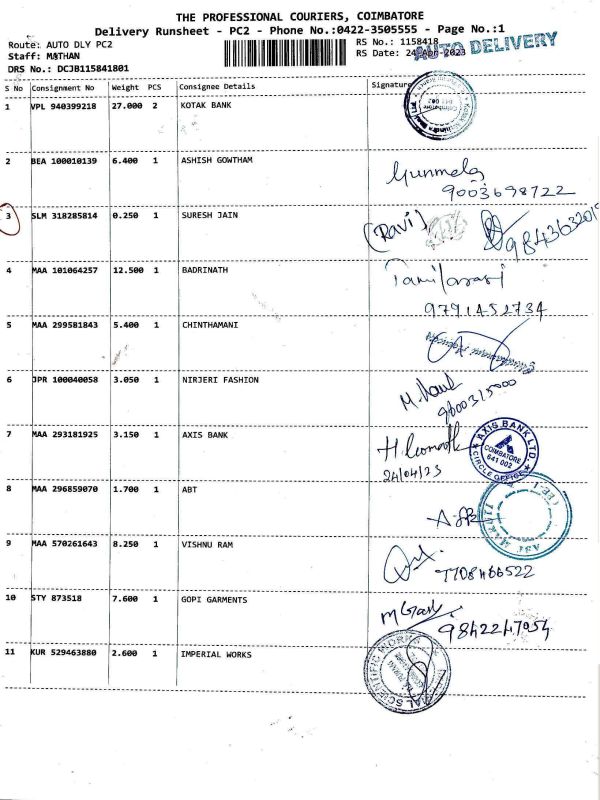 THE PROFESSIONAL COURIERS, COIMBATORE
Delivery Runsheet - PC2 - Phone No.:0422-3505555 - Page No.:1
Route: AUTO DLY PC2
RS No.: 1158418
AUTO DELIVERY
Staff: MATHAN
RS Date: 24-Apr-2023
DRS No.: DCJB115841801
S No Consignment No Weight PCS Consignee Details Signature
1 VPL 940399218 27.000 2 KOTAK BANK
2 BEA 100010139 6.400 1 ASHISH GOWTHAM
9003698722
3 SLM 318285814 0.250 1 SURESH JAIN
(Ravi)
4 MAA 101064257 12.500 1 BADRINATH
Tamilarasi
9791452734
5 MAA 299581843 5.400 1 CHINTHAMANI
6 JPR 100040058 3.050 1 NIRJERI FASHION
9600315000
7 MAA 293181925 3.150 1 AXIS BANK
24/04/23
AXIS BANK LTD.
COIMBATORE
641 002
CIRCLE OFFICE
8 MAA 296859070 1.700 1 ABT
9 MAA 570261643 8.250 1 VISHNU RAM
7708466522
10 STY 873518 7.600 1 GOPI GARMENTS
9842247054
11 KUR 529463880 2.600 1 IMPERIAL WORKS